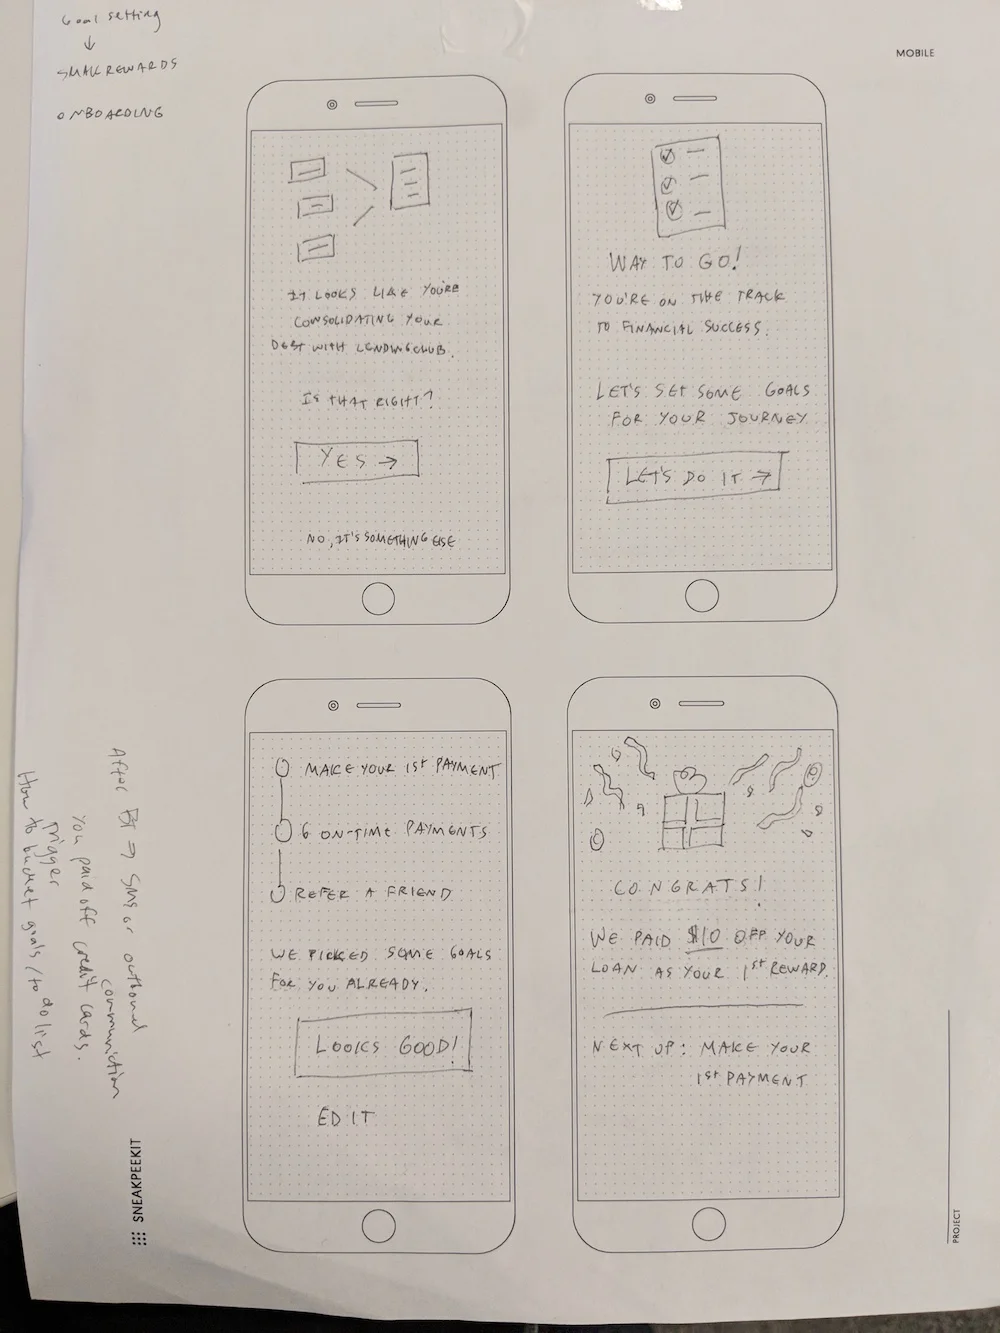 Goal setting
↓
SMALL REWARDS
ONBOARDING
MOBILE
IT LOOKS LIKE YOU'RE
CONSOLIDATING YOUR
DEBT WITH LENDINGCLUB.
IS THAT RIGHT?
YES →
NO, IT'S SOMETHING ELSE
WAY TO GO!
YOU'RE ON THE TRACK
TO FINANCIAL SUCCESS.
LET'S SET SOME GOALS
FOR YOUR JOURNEY
LET'S DO IT →
MAKE YOUR 1st PAYMENT
6 ON-TIME PAYMENTS
REFER A FRIEND
WE PICKED SOME GOALS
FOR YOU ALREADY.
LOOKS GOOD!
EDIT
CONGRATS!
WE PAID $10 OFF YOUR
LOAN AS YOUR 1st REWARD.
NEXT UP: MAKE YOUR
1st PAYMENT
After BT → SMS or outbound
communication
you paid off credit cards.
trigger
How to bucket goals / to do list
SNEAKPEEKIT
PROJECT